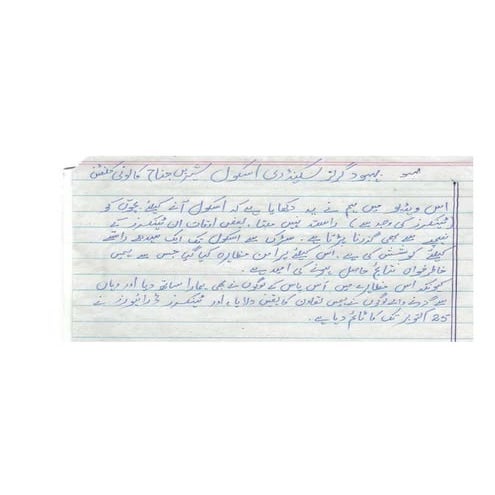 بہبود گرلز سیکنڈری اسکول شیریں جناح کالونی کلفٹن
اس ویڈیو میں ہم نے یہ دکھایا ہے کہ اسکول آنے کیلئے بچوں کو
(ٹینکرز کی وجہ سے) راستہ نہیں ملتا. بعض اوقات ان ٹینکرز کے
نیچے سے بھی گزرنا پڑتا ہے. سڑک سے اسکول تک ایک سیدھے راستے
کیلئے کوشش کی ہے. اس کیلئے پرامن مظاہرہ کیا گیا جس سے ہمیں
خاطر خواہ نتائج حاصل ہونے کی امید ہے.
کیونکہ اس مظاہرے میں آس پاس کے لوگوں نے بھی ہمارا ساتھ دیا اور وہاں
سے گزرنے والے لوگوں نے ہمیں تعاون کا یقین دلایا. اور ٹینکرز ڈرائیورز نے
25 اکتوبر تک کا ٹائم دیا ہے.